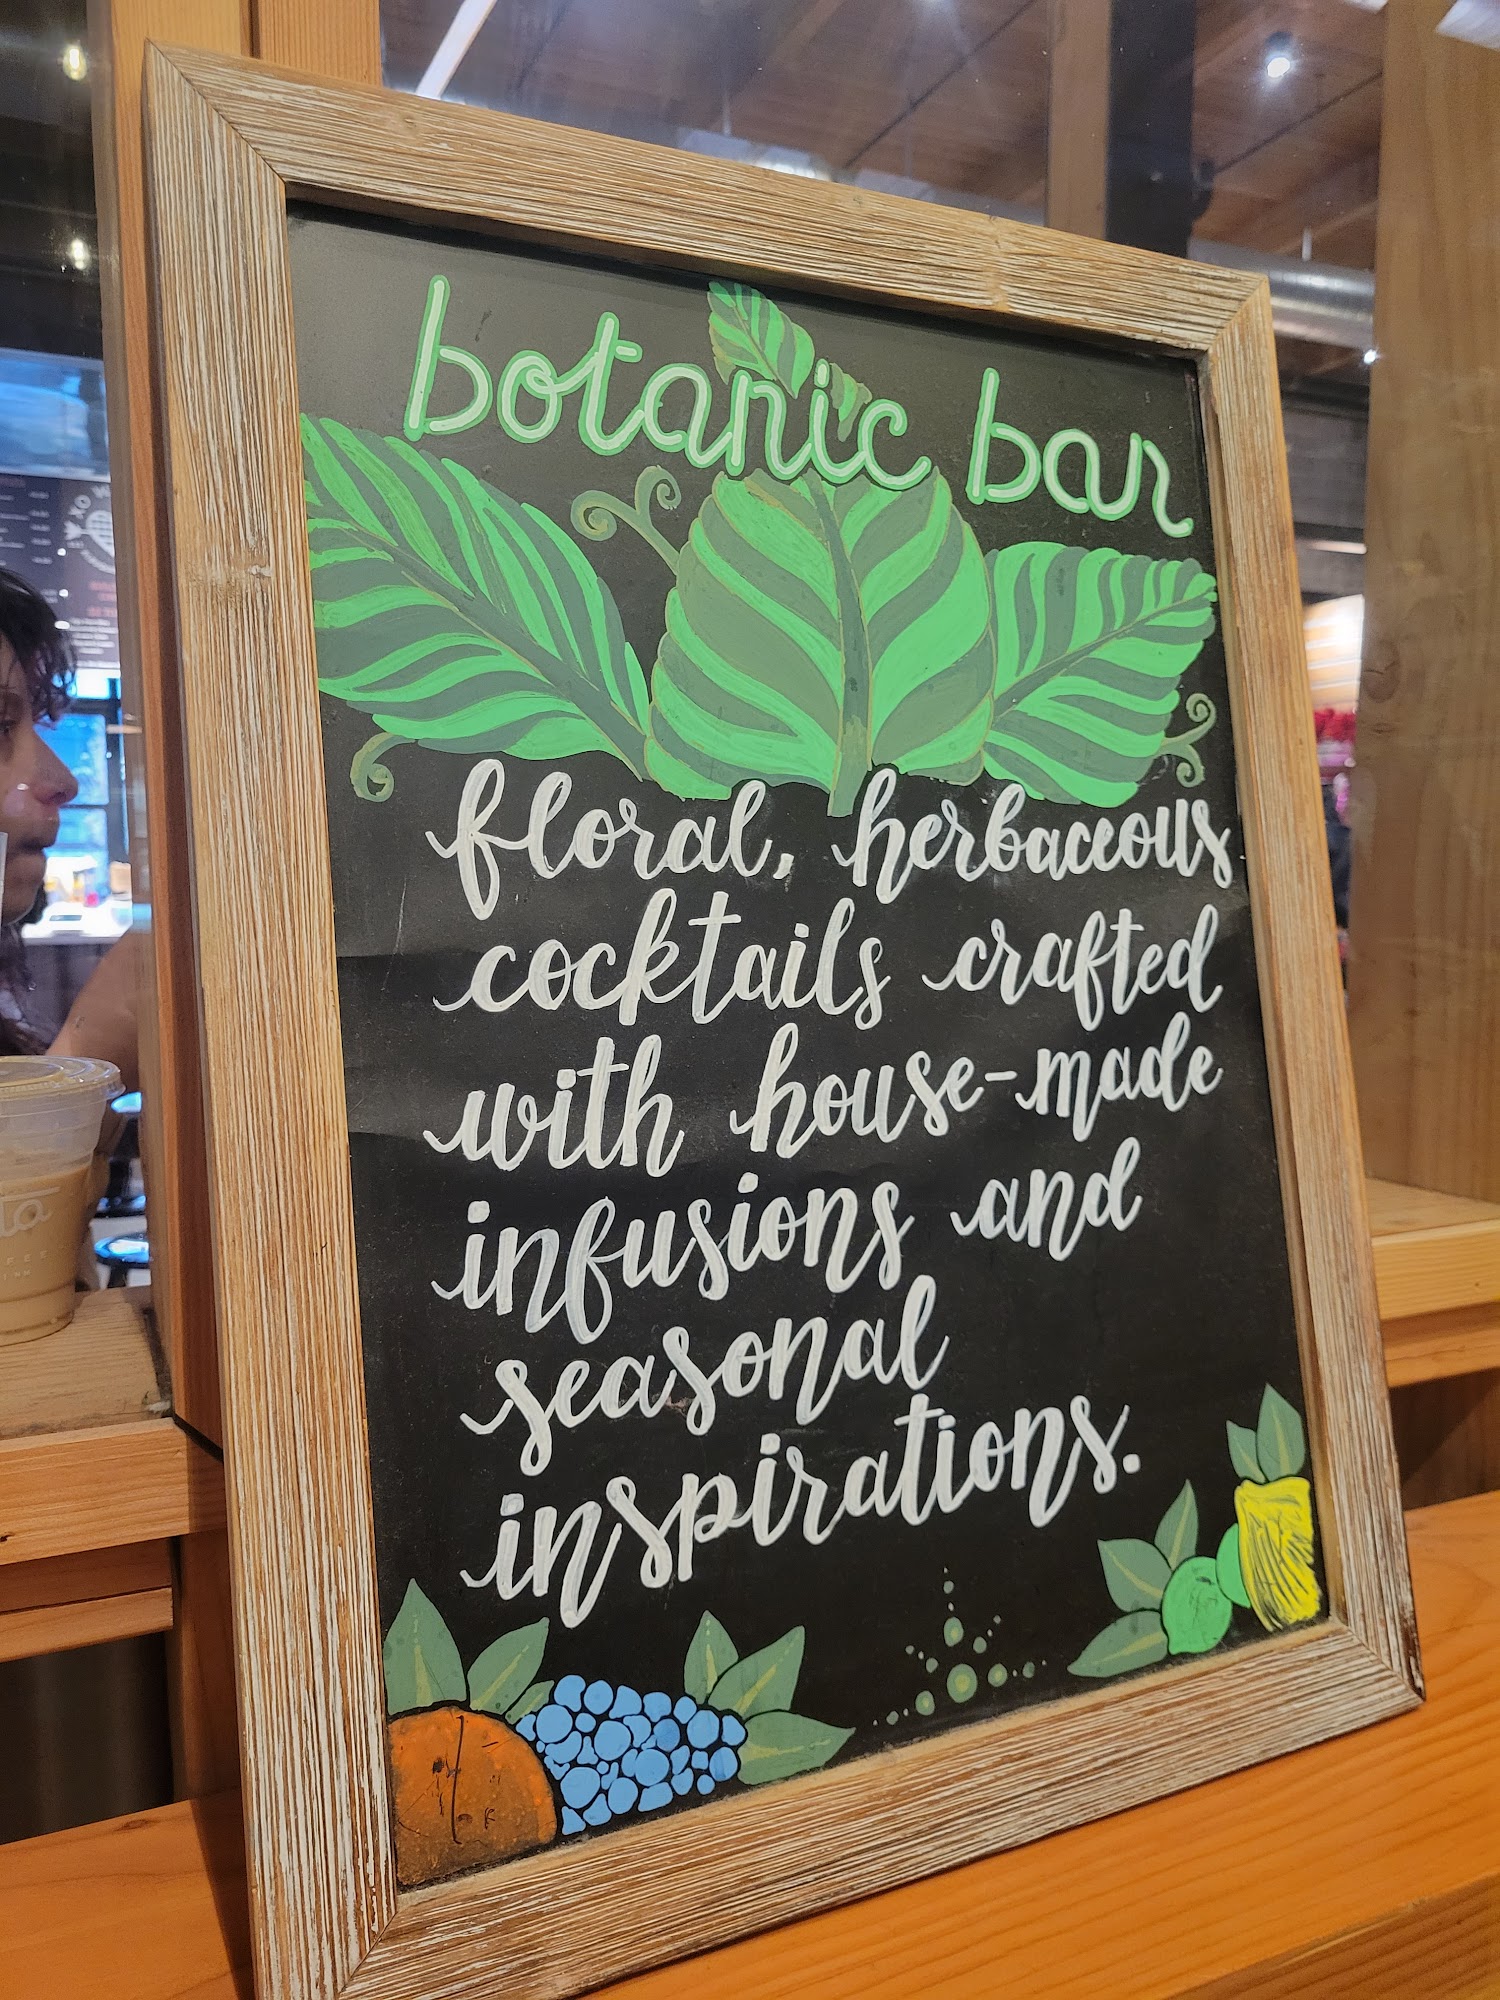 botanic bar
floral, herbaceous
cocktails crafted
with house-made
infusions and
seasonal
inspirations.